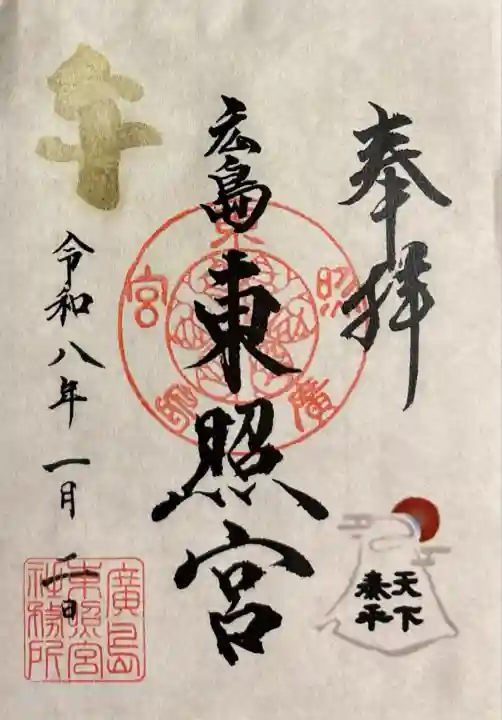 奉拝
広島東照宮
東照宮廣島
午
令和八年一月二日
廣島
東照宮
社務所
天下
泰平